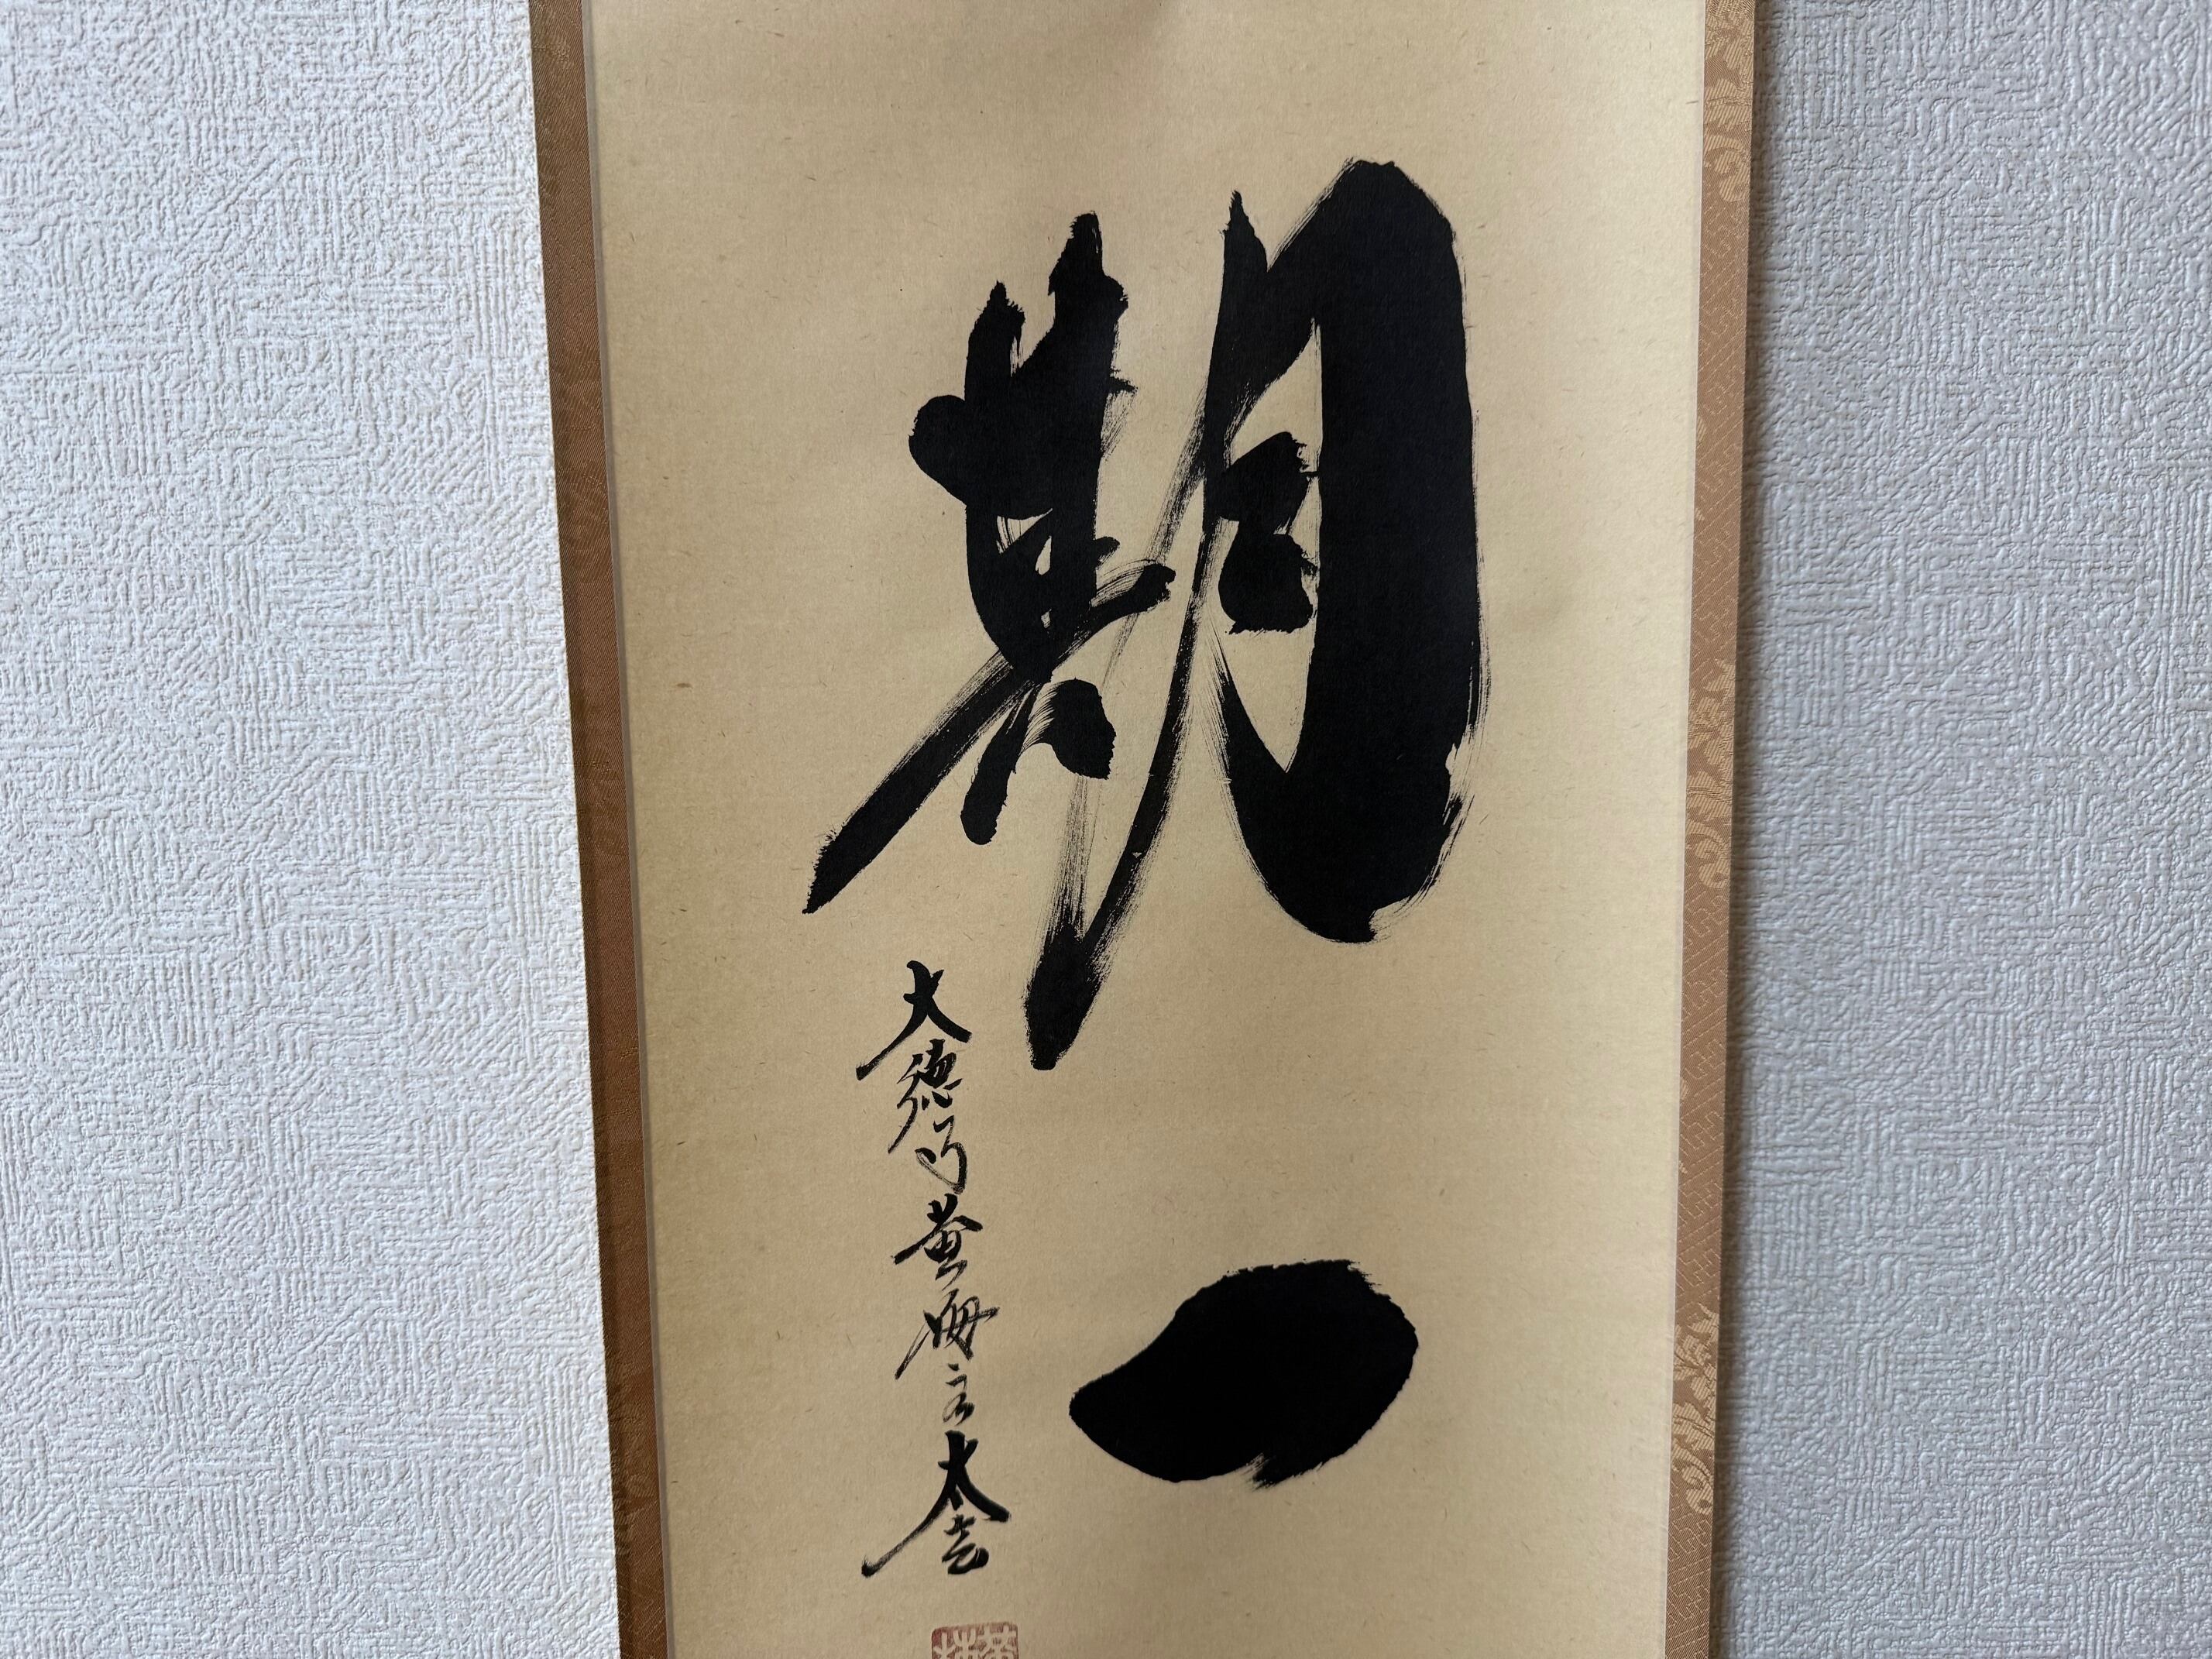 期一
大徳寺黄梅主太玄